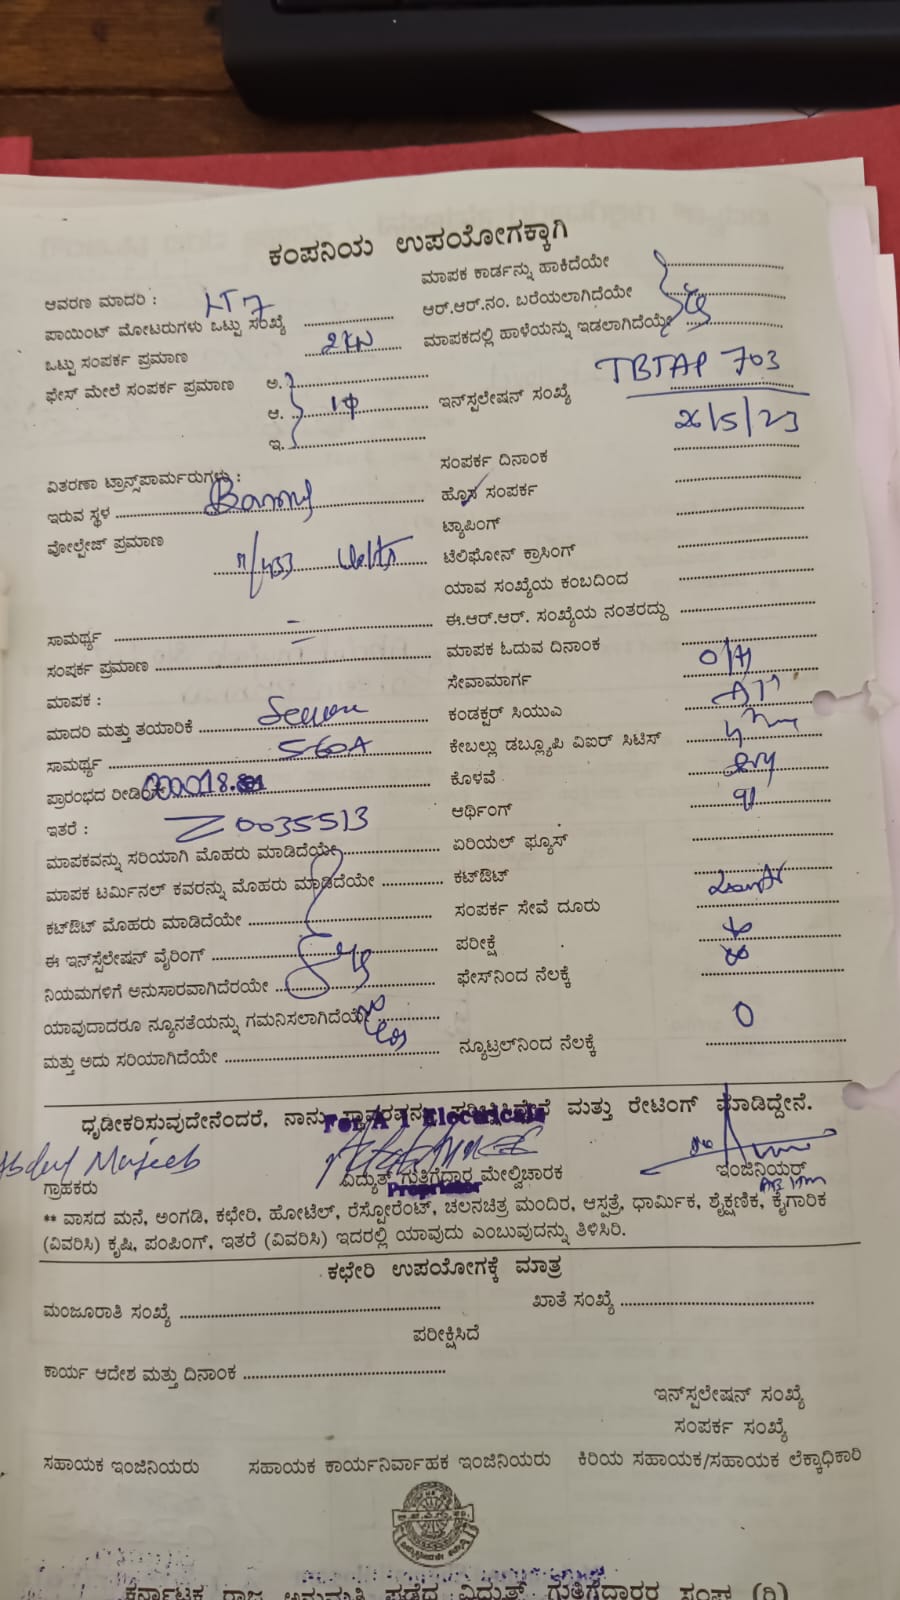 ಕಂಪನಿಯ ಉಪಯೋಗಕ್ಕಾಗಿ
ಆವರಣ ಮಾದರಿ : LT 7
ಪಾಯಿಂಟ್ ಮೋಟರುಗಳು ಒಟ್ಟು ಸಂಖ್ಯೆ
ಒಟ್ಟು ಸಂಪರ್ಕ ಪ್ರಮಾಣ 2 KW
ಫೇಸ್ ಮೇಲೆ ಸಂಪರ್ಕ ಪ್ರಮಾಣ ಅ.
ಆ. 1φ
ಇ.
ವಿತರಣಾ ಟ್ರಾನ್ಸ್‌ಪಾರ್ಮರುಗಳು :
ಇರುವ ಸ್ಥಳ
ವೋಲ್ಟೇಜ್ ಪ್ರಮಾಣ
11/433 Volts
ಸಾಮರ್ಥ್ಯ
ಸಂಪರ್ಕ ಪ್ರಮಾಣ
ಮಾಪಕ :
ಮಾದರಿ ಮತ್ತು ತಯಾರಿಕೆ
ಸಾಮರ್ಥ್ಯ 5-60A
ಪ್ರಾರಂಭದ ರೀಡಿಂಗ್
ಇತರೆ : Z0035513
ಮಾಪಕವನ್ನು ಸರಿಯಾಗಿ ಮೊಹರು ಮಾಡಿದೆಯೇ
ಮಾಪಕ ಟರ್ಮಿನಲ್ ಕವರನ್ನು ಮೊಹರು ಮಾಡಿದೆಯೇ
ಕಟ್‌ಔಟ್ ಮೊಹರು ಮಾಡಿದೆಯೇ
ಈ ಇನ್‌ಸ್ಪೆಲೇಷನ್ ವೈರಿಂಗ್
ನಿಯಮಗಳಿಗೆ ಅನುಸಾರವಾಗಿದೆರಯೇ
ಯಾವುದಾದರೂ ನ್ಯೂನತೆಯನ್ನು ಗಮನಿಸಲಾಗಿದೆಯೇ
ಮತ್ತು ಅದು ಸರಿಯಾಗಿದೆಯೇ
ಮಾಪಕ ಕಾರ್ಡನ್ನು ಹಾಕಿದೆಯೇ
ಆರ್.ಆರ್.ನಂ. ಬರೆಯಲಾಗಿದೆಯೇ
ಮಾಪಕದಲ್ಲಿ ಹಾಳೆಯನ್ನು ಇಡಲಾಗಿದೆಯೇ
ಇನ್‌ಸ್ಪಲೇಷನ್ ಸಂಖ್ಯೆ TBTAP 703
26/5/23
ಸಂಪರ್ಕ ದಿನಾಂಕ
ಹೊಸ ಸಂಪರ್ಕ
ಟ್ಯಾಪಿಂಗ್
ಟೆಲಿಫೋನ್ ಕ್ರಾಸಿಂಗ್
ಯಾವ ಸಂಖ್ಯೆಯ ಕಂಬದಿಂದ
ಈ.ಆರ್.ಆರ್. ಸಂಖ್ಯೆಯ ನಂತರದ್ದು
ಮಾಪಕ ಓದುವ ದಿನಾಂಕ
ಸೇವಾಮಾರ್ಗ O/H
ಕಂಡಕ್ಟರ್ ಸಿಯುಎ
ಕೇಬಲ್ಲು ಡಬ್ಲ್ಯೂಪಿ ವಿಐರ್ ಸಿಟಿಸ್
ಕೊಳವೆ
ಆರ್ಥಿಂಗ್
ಏರಿಯಲ್ ಫ್ಯೂಸ್
ಕಟ್‌ಔಟ್
ಸಂಪರ್ಕ ಸೇವೆ ದೂರು
ಪರೀಕ್ಷೆ
ಫೇಸ್‌ನಿಂದ ನೆಲಕ್ಕೆ
ನ್ಯೂಟ್ರಲ್‌ನಿಂದ ನೆಲಕ್ಕೆ 0
ಧೃಡೀಕರಿಸುವುದೇನೆಂದರೆ, ನಾನು ಸ್ಥಾವರವನ್ನು ಪರೀಕ್ಷಿಸಿದ್ದೇನೆ ಮತ್ತು ರೇಟಿಂಗ್ ಮಾಡಿದ್ದೇನೆ.
For A 1 Electricals
Abdul Majeeb
ಗ್ರಾಹಕರು ವಿದ್ಯುತ್ ಗುತ್ತಿಗೆದಾರ ಮೇಲ್ವಿಚಾರಕ ಇಂಜಿನಿಯರ್
Proprietor
** ವಾಸದ ಮನೆ, ಅಂಗಡಿ, ಕಛೇರಿ, ಹೋಟೆಲ್, ರೆಸ್ಟೋರೆಂಟ್, ಚಲನಚಿತ್ರ ಮಂದಿರ, ಆಸ್ಪತ್ರೆ, ಧಾರ್ಮಿಕ, ಶೈಕ್ಷಣಿಕ, ಕೈಗಾರಿಕ
(ವಿವರಿಸಿ) ಕೃಷಿ, ಪಂಪಿಂಗ್, ಇತರೆ (ವಿವರಿಸಿ) ಇದರಲ್ಲಿ ಯಾವುದು ಎಂಬುವುದನ್ನು ತಿಳಿಸಿರಿ.
ಕಛೇರಿ ಉಪಯೋಗಕ್ಕೆ ಮಾತ್ರ
ಮಂಜೂರಾತಿ ಸಂಖ್ಯೆ ಖಾತೆ ಸಂಖ್ಯೆ
ಪರೀಕ್ಷಿಸಿದೆ
ಕಾರ್ಯ ಆದೇಶ ಮತ್ತು ದಿನಾಂಕ
ಇನ್‌ಸ್ಪಲೇಷನ್ ಸಂಖ್ಯೆ
ಸಂಪರ್ಕ ಸಂಖ್ಯೆ
ಸಹಾಯಕ ಇಂಜಿನಿಯರು ಸಹಾಯಕ ಕಾರ್ಯನಿರ್ವಾಹಕ ಇಂಜಿನಿಯರು ಕಿರಿಯ ಸಹಾಯಕ/ಸಹಾಯಕ ಲೆಕ್ಕಾಧಿಕಾರಿ
ಕರ್ನಾಟಕ ರಾಜ್ಯ ಅನುಮತಿ ಪಡೆದ ವಿದ್ಯುತ್ ಗುತ್ತಿಗೆದಾರರ ಸಂಘ (ರಿ)